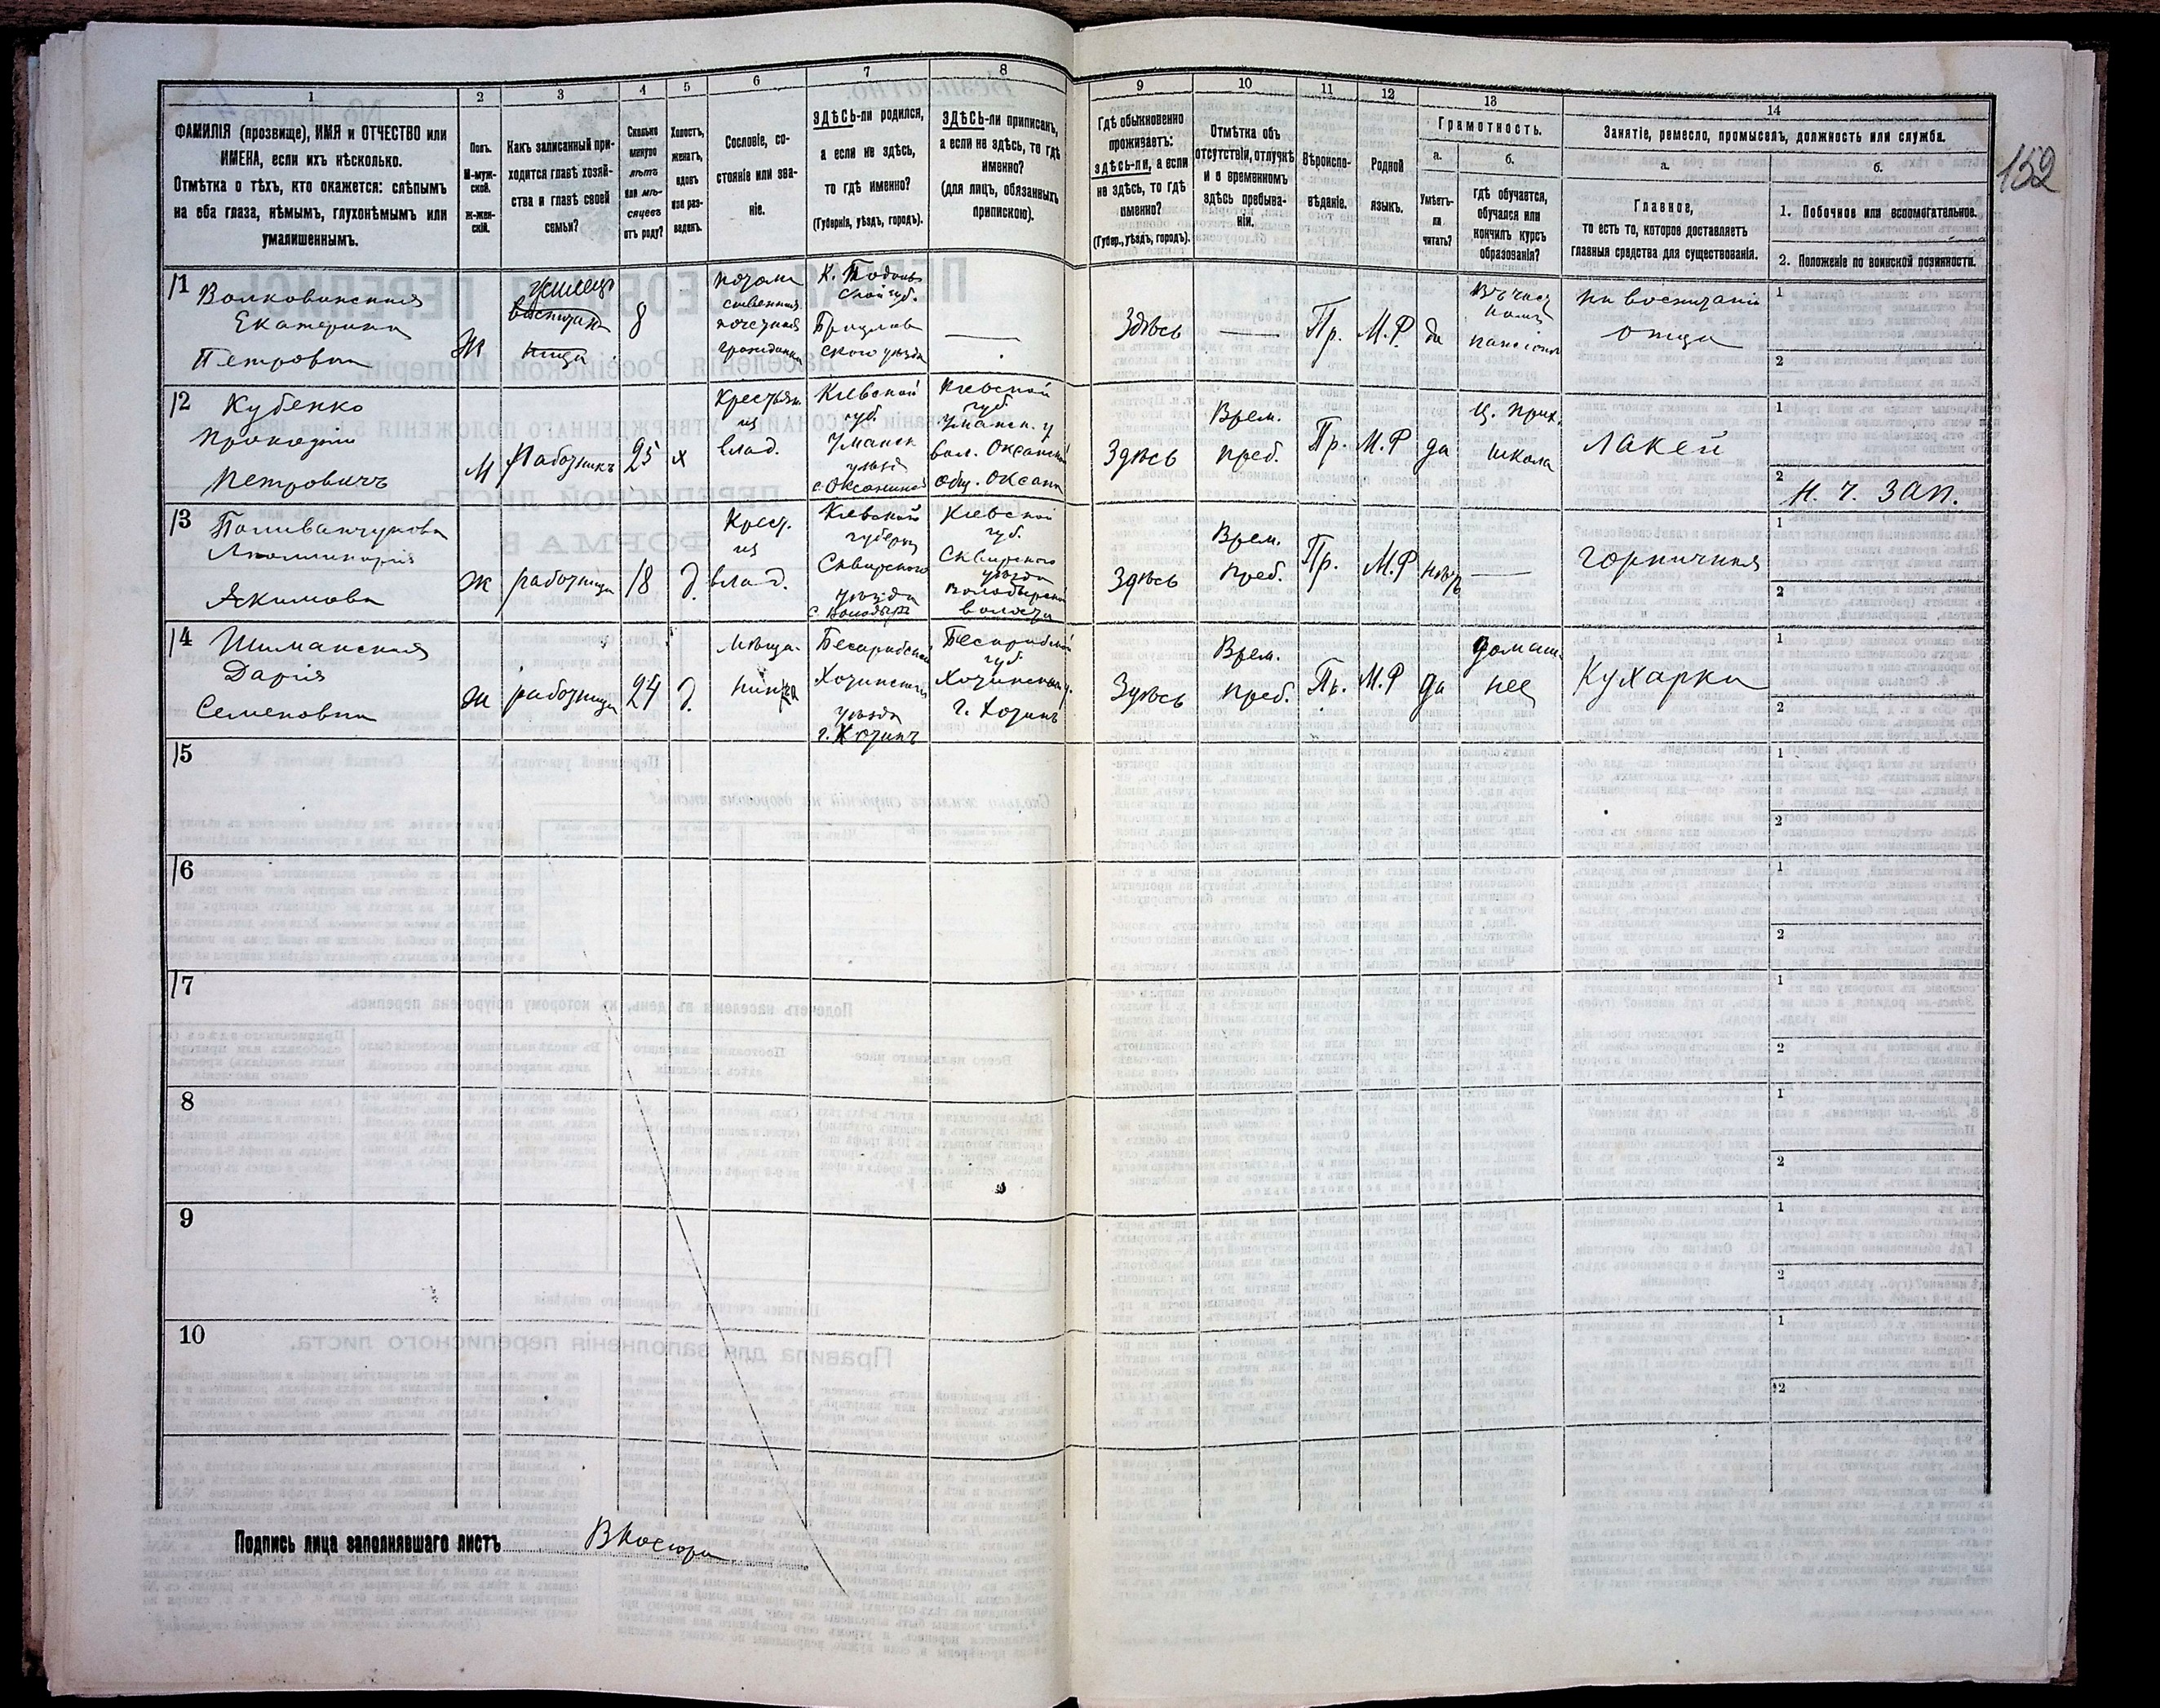 152
1 2 3 4 5 6 7 8 9 10 11 12 13 14
ФАМИЛІЯ (прозвище), ИМЯ и ОТЧЕСТВО или
ИМЕНА, если ихъ нѣсколько.
Отмѣтка о тѣхъ, кто окажется: слѣпымъ
на оба глаза, нѣмымъ, глухонѣмымъ или
умалишеннымъ.
Полъ.
М-муж-
ской.
Ж-жен-
скій.
Какъ записанный при-
ходится главѣ хозяй-
ства и главѣ своей
семьи?
Сколько
минуло
лѣтъ
или мѣ-
сяцевъ
отъ роду?
Холостъ,
женатъ,
вдовъ
или раз-
веденъ.
Сословіе, со-
стояніе или зва-
ніе.
ЗДѢСЬ-ли родился,
а если не здѣсь,
то гдѣ именно?
(Губернія, уѣздъ, городъ).
ЗДѢСЬ-ли приписанъ,
а если не здѣсь, то гдѣ
именно?
(для лицъ, обязанныхъ
припискою).
Гдѣ обыкновенно
проживаетъ:
здѣсь-ли, а если
не здѣсь, то гдѣ
именно?
(Губер., уѣздъ, городъ).
Отмѣтка объ
отсутствіи, отлучкѣ
и о временномъ
здѣсь пребыва-
ніи.
Вѣроиспо-
вѣданіе.
Родной
языкъ.
Грамотность.
а.
Умѣетъ-
ли
читать?
б.
Гдѣ обучается,
обучался или
кончилъ курсъ
образованія?
Занятіе, ремесло, промыселъ, должность или служба.
а.
Главное,
то есть то, которое доставляетъ
главныя средства для существованія.
б.
1. Побочное или вспомогательное.
2. Положеніе по воинской повинности.
11
Волковинская
Екатерина
Петровна
Ж
жилица
8
потом
ственная
почетная
гражданка
К. Подоль
ской губ.
ского уѣзда
Здѣсь
Пр.
М.Р.
да
пансіонѣ
на воспитаніи
отца
1
2
12
Кубенко
Прокофій
Петровичъ
М
Работникъ
25
х
Крестьян.
из
влад.
Кіевской
губ.
Уманск
уѣзда
Кіевской
губ.
Уманск. у
вол.
общ.
Здѣсь
Врем.
преб.
Пр.
М.Р
да
Ц. прих.
школа
Лакей
1
2
Н. Ч. ЗАП.
13
Поливанчукова
Якимовна
Ж
работница
18
д.
Крест.
из
влад.
Кіевской
губерн
Сквирского
уѣзда
Кіевской
губ.
Сквирского
уѣзда
волости
Здѣсь
Врем.
преб.
Пр.
М.Р
нѣтъ
горничная
1
2
14
Шиманская
Дарія
Семеновна
Ж
работница
24
д.
мѣща-
нка
Бесарабской
Хотинского
уѣзда
г. Хотинъ
Бесарабской
губ.
Хотинского у.
г. Хотинъ
Здѣсь
Врем.
преб.
Пр.
М.Р
да
домаш-
нее
Кухарка
1
2
15
1
2
16
1
2
17
1
2
8
1
2
9
1
2
10
1
2
Подпись лица заполнявшаго листъ